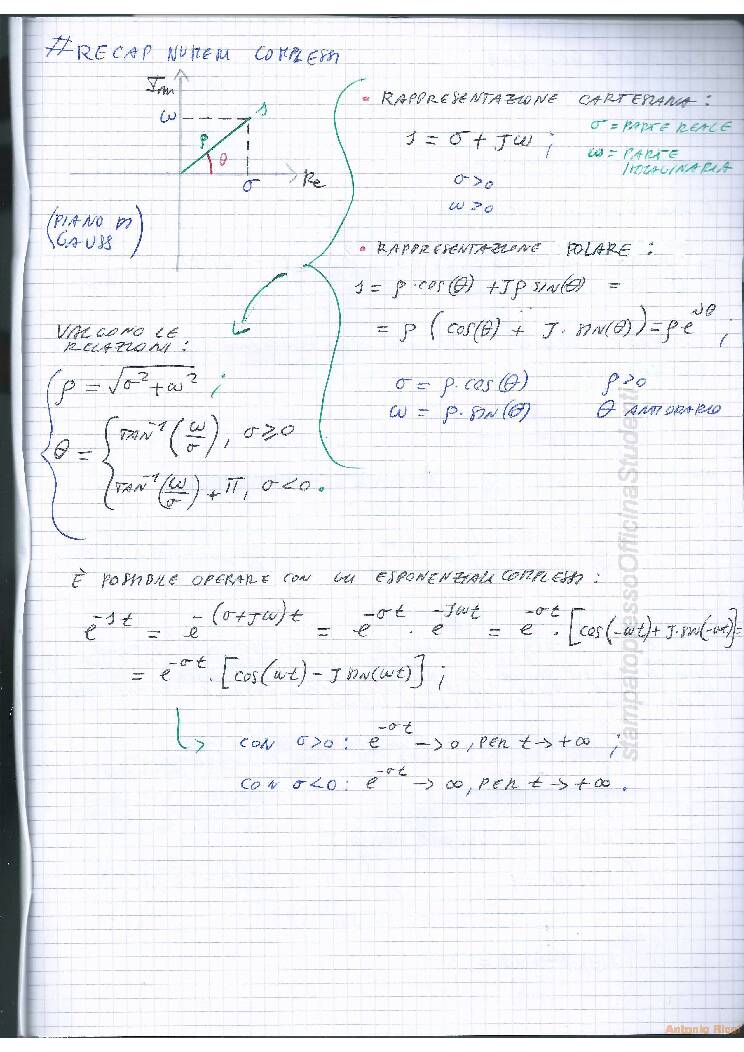 # RECAP NUMERI COMPLESSI
Im
ω
s
ρ
θ
σ
Re
(PIANO DI
GAUSS)
• RAPPRESENTAZIONE CARTESIANA :
s = σ + Jω ;
σ = PARTE REALE
ω = PARTE
IMMAGINARIA
σ>0
ω>0
• RAPPRESENTAZIONE POLARE :
s = ρ·cos(θ) + Jρ sin(θ) =
= ρ (cos(θ) + J·sin(θ)) = ρ·e^{Jθ} ;
σ = ρ·cos(θ)
ρ>0
ω = ρ·sin(θ)
θ ANTIORARIO
VALGONO LE
RELAZIONI :
ρ = √(σ² + ω²) ;
θ = { TAN⁻¹(ω/σ), σ⩾0
TAN⁻¹(ω/σ) + π, σ<0.
È POSSIBILE OPERARE CON GLI ESPONENZIALI COMPLESSI :
e^{-st} = e^{-(σ+Jω)t} = e^{-σt} · e^{-Jωt} = e^{-σt} · [cos(-ωt) + J·sin(-ωt)] =
= e^{-σt} · [cos(ωt) - J sin(ωt)] ;
CON σ>0 : e^{-σt} → 0, PER t → +∞ ;
CON σ<0 : e^{-σt} → ∞, PER t → +∞ .
stampatopressoOfficinaStudenti
Antonio Ricci